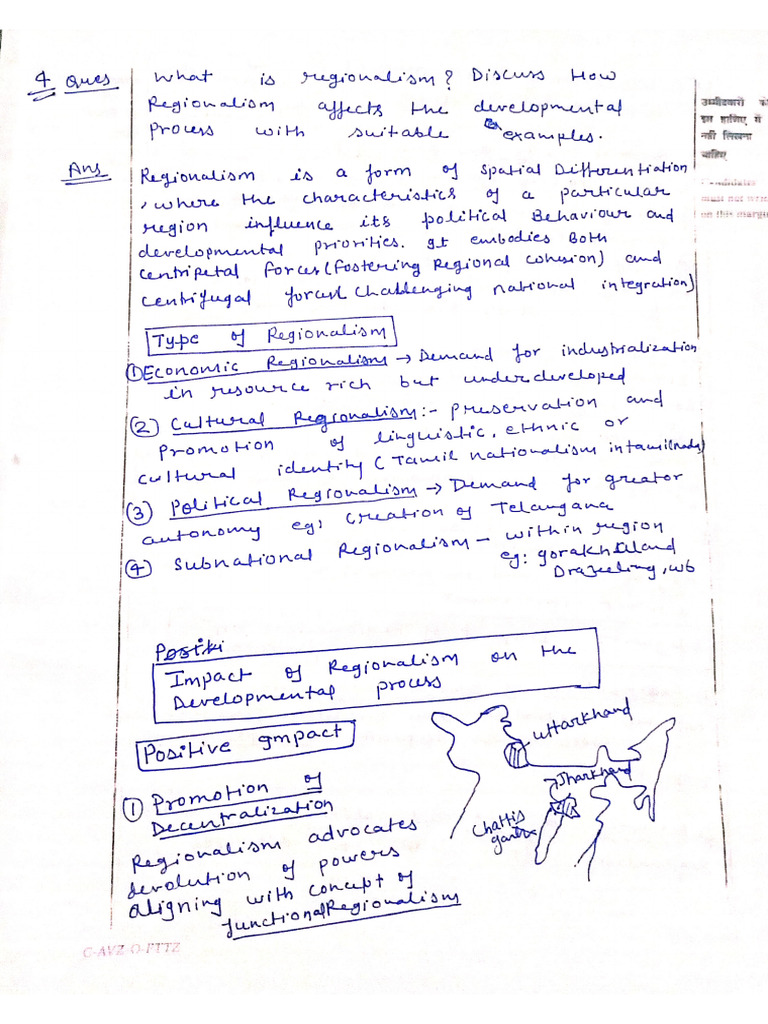 4 Ques What is regionalism? Discuss How
Regionalism affects the developmental
process with suitable examples.
Ans Regionalism is a form of spatial Differentiation
, where the characteristics of a particular
region influence its political Behaviour and
developmental priorities. It embodies Both
centripetal forces (fostering Regional cohesion) and
centrifugal forces (challenging national integration)
Type of Regionalism
① Economic Regionalism → Demand for industrialization
in resource rich but underdeveloped
② Cultural Regionalism:- preservation and
promotion of linguistic, ethnic or
cultural identity (Tamil nationalism in tamilnadu)
③ Political Regionalism → Demand for greator
autonomy eg: creation of Telangana
④ Subnational Regionalism - within region
eg: gorakhaland
Drazeeling, WB
उम्मीदवारों को
इस हाशिए में
नहीं लिखना
चाहिए
Candidates
must not write
on this margin
Impact of Regionalism on the
Developmental process
Positive Impact
uttarkhand
Jharkhand
Chattis
garh
① Promotion of
Decentralization
Regionalism advocates
devolution of powers
aligning with concept of
functional Regionalism
C-AVZ-O-FTTZ